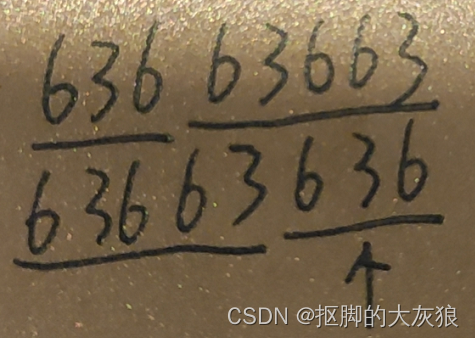 636 63663
63663 636
↑
CSDN @抠脚的大灰狼